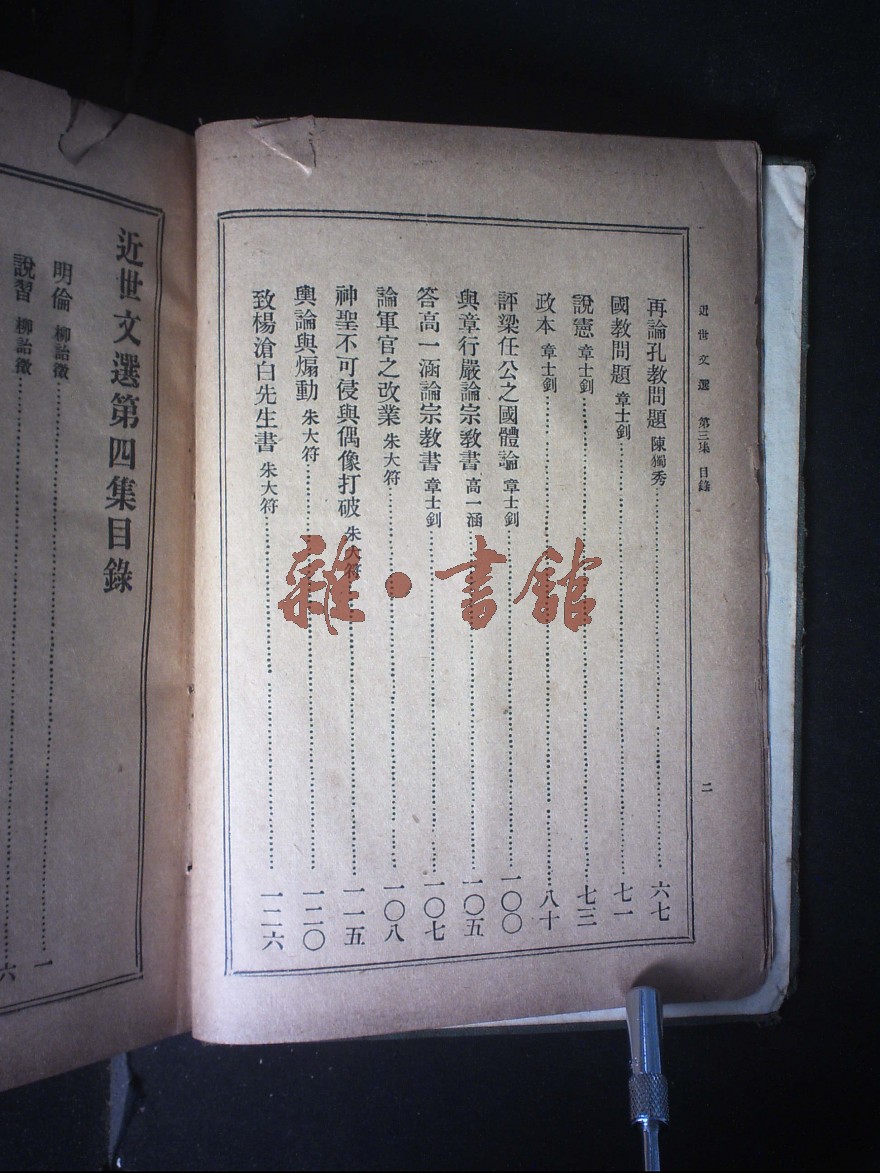 近世文選 第三集 目錄 二
再論孔教問題 陳獨秀……六七
國教問題 章士釗……七一
說憲 章士釗……七三
政本 章士釗……八十
評梁任公之國體論 章士釗……一〇〇
與章行嚴論宗教書 高一涵……一〇五
答高一涵論宗教書 章士釗……一〇七
論軍官之改業 朱大符……一〇八
神聖不可侵與偶像打破 朱大符……一一五
輿論與煽動 朱大符……一二〇
致楊滄白先生書 朱大符……一二六
近世文選第四集目錄
明倫 柳詒徵……一
說習 柳詒徵……六
雜·書館